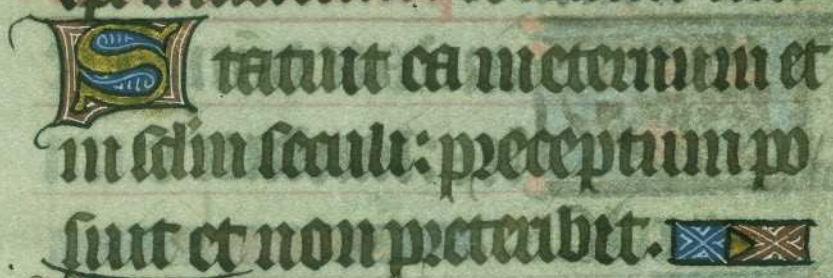 Statuit ea in eternum et
in sclm seculi: preceptum po
suit et non preteribit.